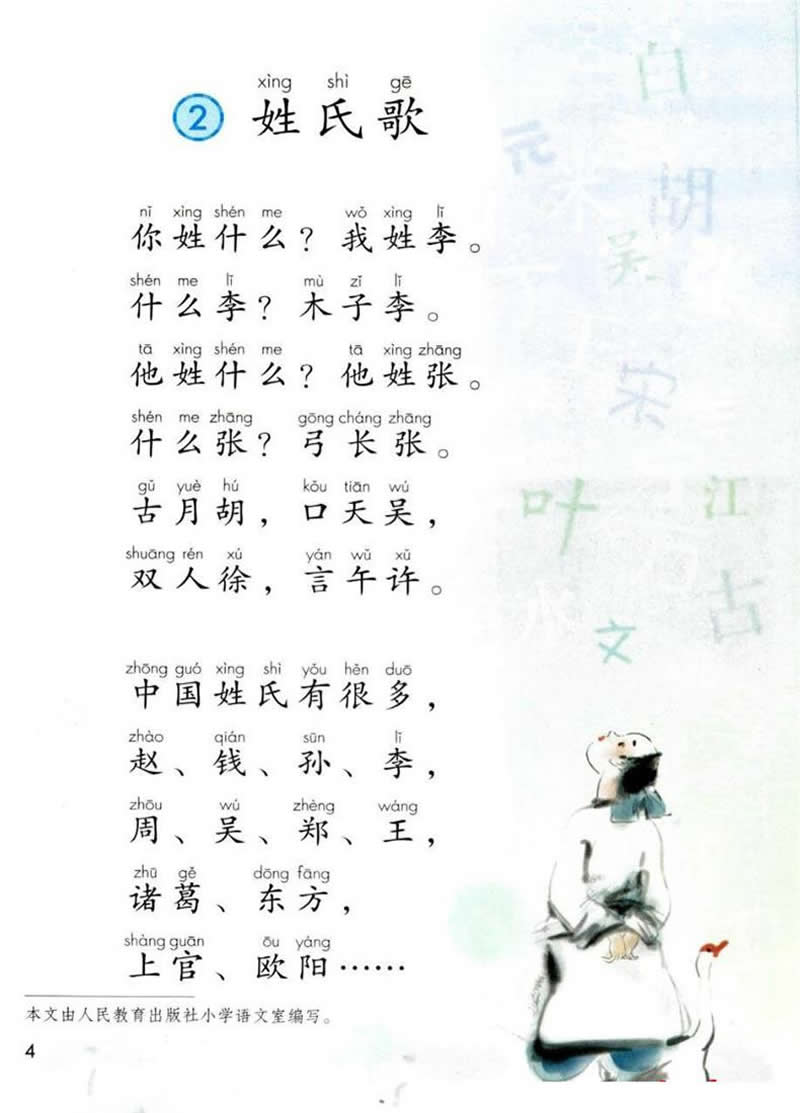 xìng shì gē
2 姓氏歌
nǐ xìng shén me wǒ xìng lǐ
你姓什么？我姓李。
shén me lǐ mù zǐ lǐ
什么李？木子李。
tā xìng shén me tā xìng zhāng
他姓什么？他姓张。
shén me zhāng gōng cháng zhāng
什么张？弓长张。
gǔ yuè hú kǒu tiān wú
古月胡，口天吴，
shuāng rén xú yán wǔ xǔ
双人徐，言午许。
zhōng guó xìng shì yǒu hěn duō
中国姓氏有很多，
zhào qián sūn lǐ
赵、钱、孙、李，
zhōu wú zhèng wáng
周、吴、郑、王，
zhū gě dōng fāng
诸葛、东方，
shàng guān ōu yáng
上官、欧阳……
本文由人民教育出版社小学语文室编写。
4
白
元
木
胡
吴
宋
叶
江
古
文